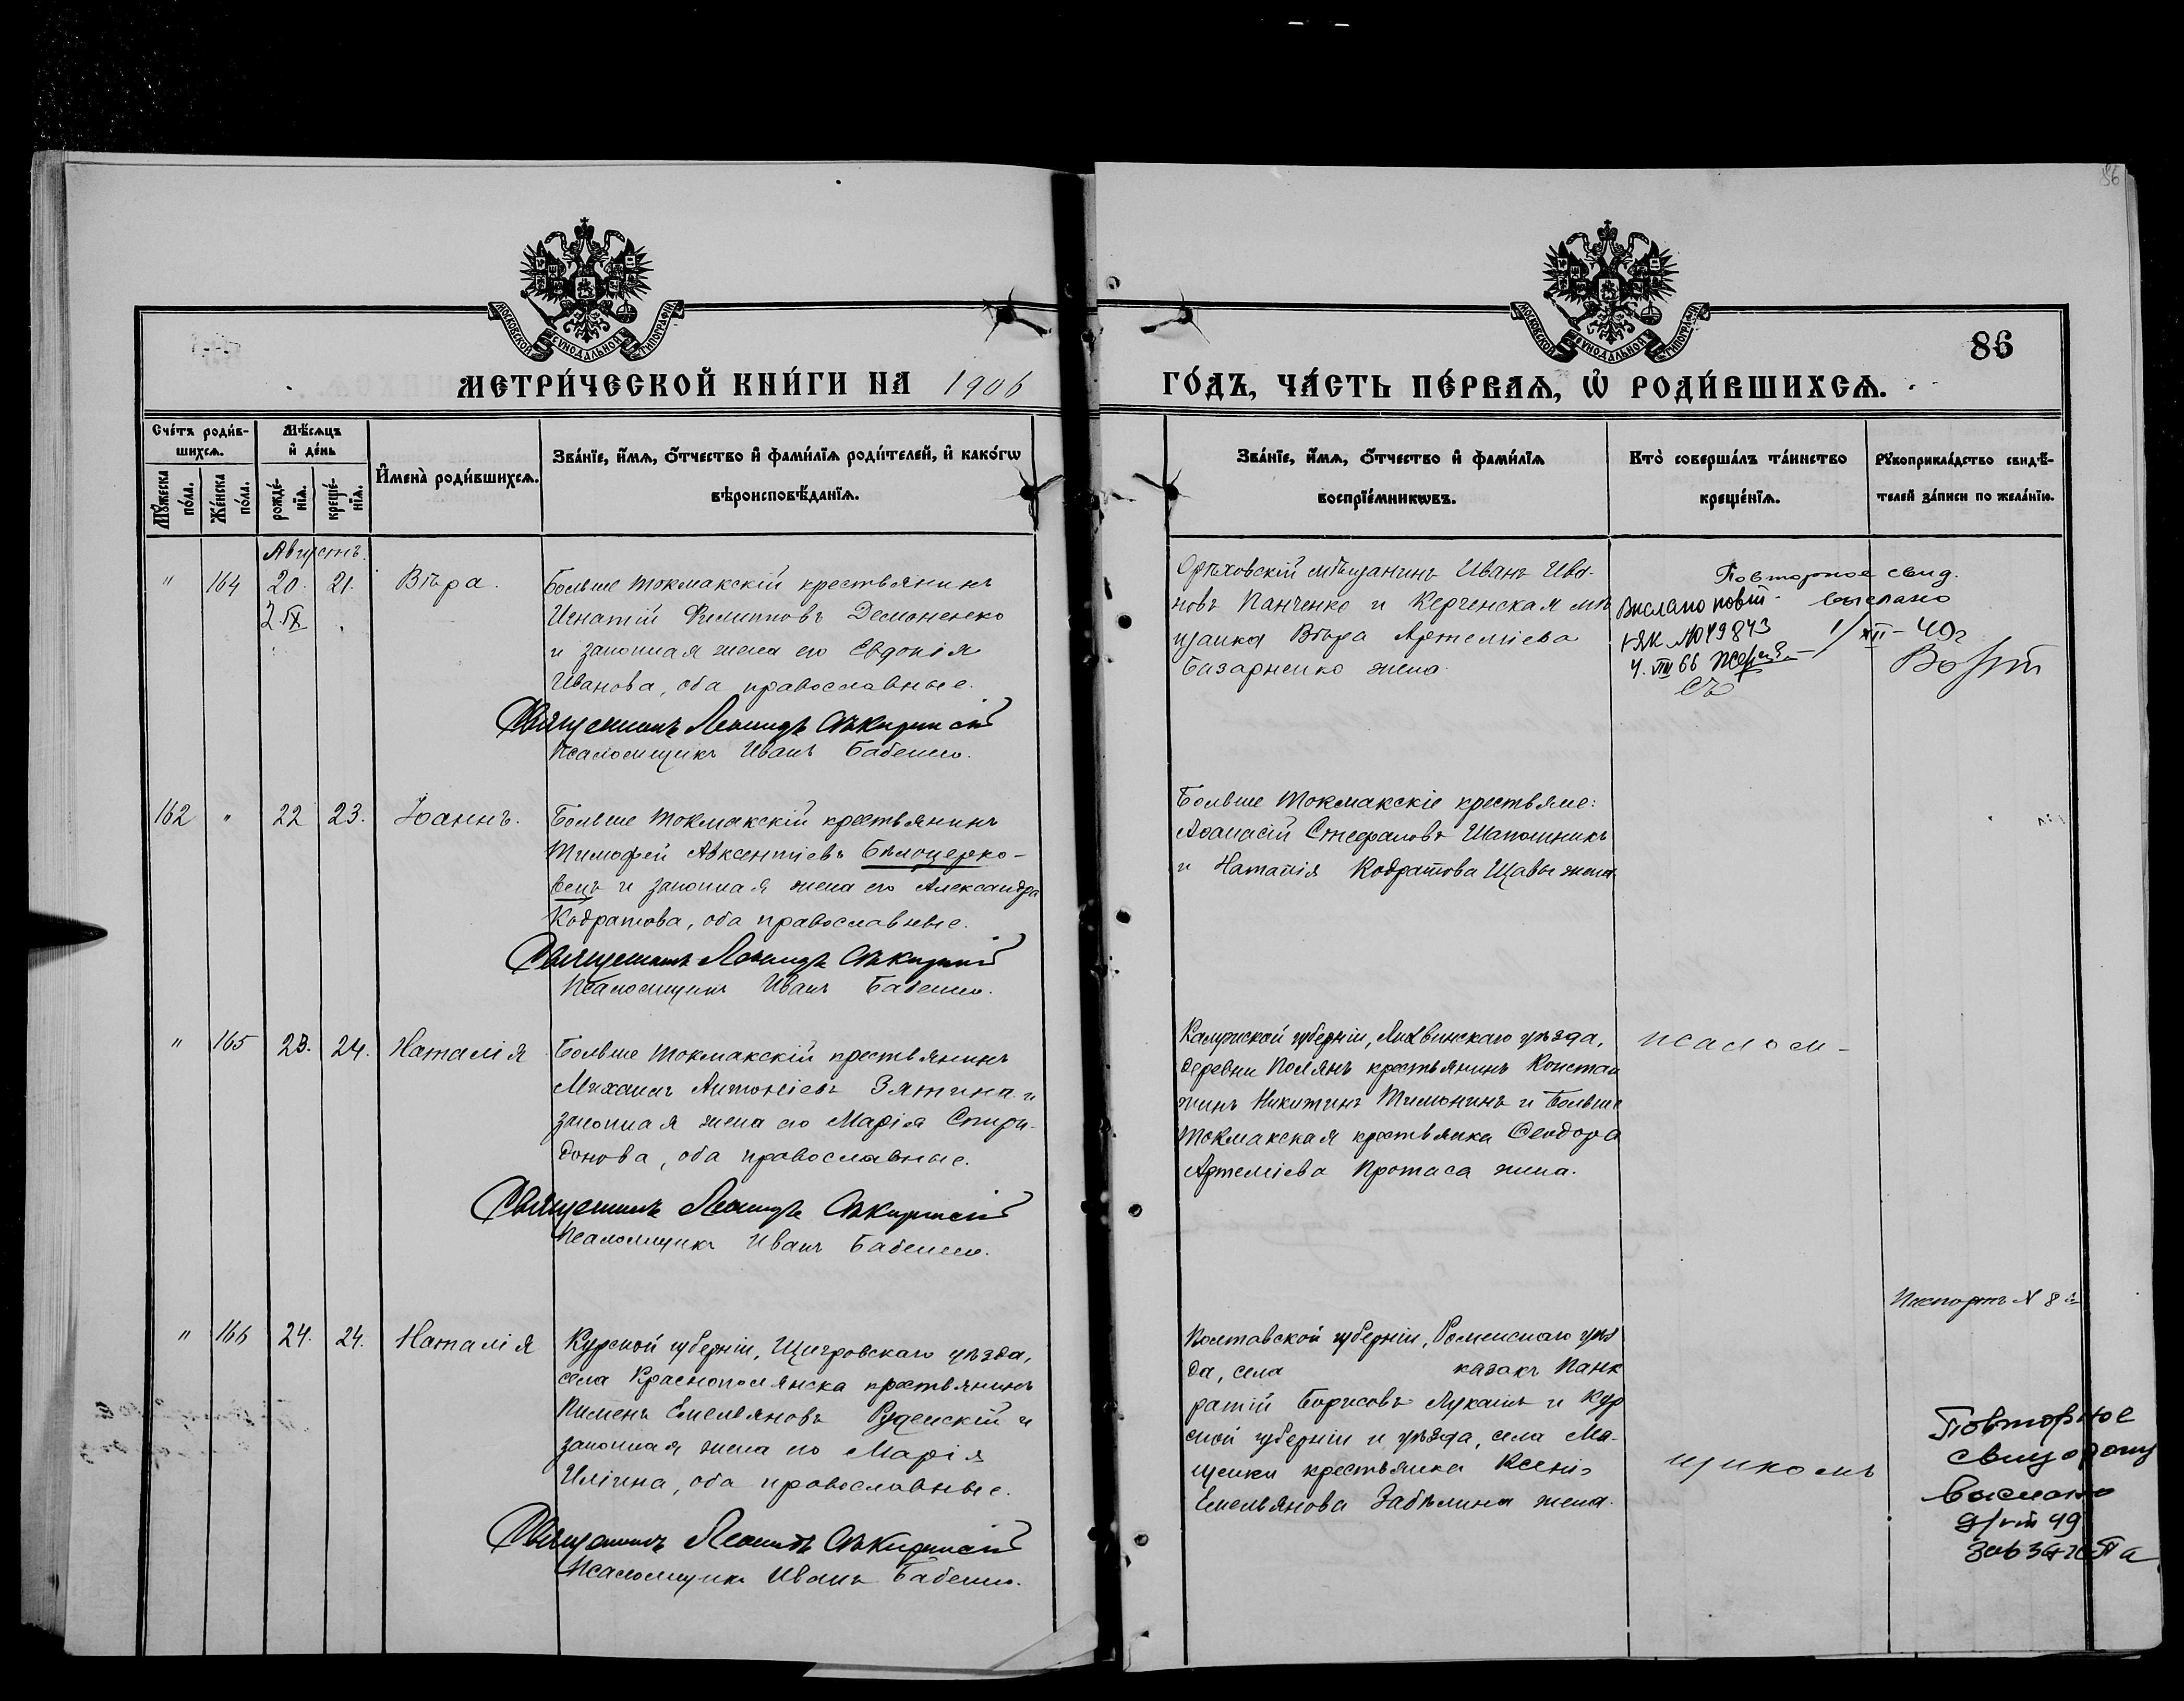 86
МОСКОВСКОЙ СѴНОДАЛЬНОЙ ТИПОГРАФІИ
МОСКОВСКОЙ СѴНОДАЛЬНОЙ ТИПОГРАФІИ
86
МЕТРИ́ЧЕСКОЙ КНИ́ГИ НА 1906
ГО́ДЪ, ЧА́СТЬ ПЕ́РВАЯ, Ѡ҆ РОДИ́ВШИХСѦ.
Сче́тъ роди́в-
шихсѧ.
Мꙋ́жеска по́ла.
Же́нска по́ла.
Мѣ́сѧцъ
и҆ де́нь
рожде́-
нїѧ.
креще́-
нїѧ.
И҆мена̀ роди́вшихсѧ.
Зва́нїе, и҆́мѧ, ѻ҆́тчество и҆ фами́лїѧ роди́телей, и҆ како́гѡ
вѣроисповѣ́данїѧ.
Зва́нїе, и҆́мѧ, ѻ҆́тчество и҆ фами́лїѧ
воспрїе́мникѡвъ.
Кто̀ соверша́лъ та́инство
креще́нїѧ.
Рꙋкоприкла́дство свидѣ́-
телей за́писи по жела́нїю.
Августъ.
" 164 20. 21. Вѣра.
2.IX
Больше Токмакскій крестьянинъ
Игнатій Филипповъ Демоненко
и законная жена его Евдокія
Иванова, оба православные.
Священникъ Леонидъ
Псаломщикъ Иванъ Бабенко.
Орѣховскій мѣщанинъ Иванъ Ива-
новъ Панченко и Керченская мѣ
щанка Вѣра Артеміева
Базарненко жена.
Повторное свид.
выслано
1/XII-40г
Вислано повт.
I-ЯК №049843
4.VIII 66
162 " 22 23. Іоаннъ.
Больше Токмакскій крестьянинъ
Тимофей Авксентіевъ Бѣлоцерко-
вецъ и законная жена его Александра
Кодратова, оба православные.
Священникъ Леонидъ
Псаломщикъ Иванъ Бабенко.
Больше Токмакскіе крестьяне:
Аѳанасій Стефановъ Шапошникъ
и Наталія Кодратова Щавы жена
" 165 23. 24. Наталія
Больше Токмакскій крестьянинъ
Михаилъ Антоніевъ Зятина и
законная жена его Марія Спири-
донова, оба православные.
Священникъ Леонидъ
Псаломщикъ Иванъ Бабенко.
Калужской губерніи, Лихвинскаго уѣзда,
деревни Полянъ крестьянинъ Констан
тинъ Никитинъ Тимонинъ и Больше
Токмакская крестьянка Ѳеодора
Артеміева Протаса жена.
псалом-
" 166 24. 24. Наталія
Курской губерніи, Щигровскаго уѣзда,
села Краснополянска крестьянинъ
Пименъ Емельяновъ Руденскій и
законная жена его Марія
Иліина, оба православные.
Священникъ Леонидъ
Псаломщикъ Иванъ Бабенко.
Полтавской губерніи, Роменскаго уѣз
да, села казакъ Панк
ратій Борисовъ Лукашъ и Кур
ской губерніи и уѣзда, села
крестьянка Ксенія
Емельянова Забѣлина жена.
щикомъ
Паспортъ N 8
Повторное
выслано